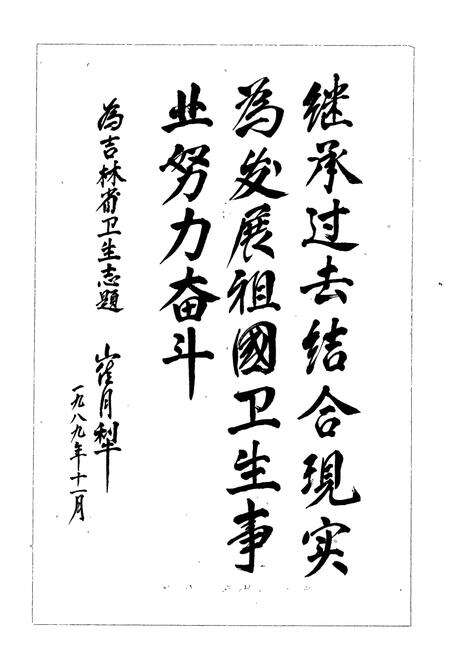 继承过去结合现实
为发展祖國卫生事
业努力奋斗
为吉林省卫生志题
崔月犁
一九八九年十一月